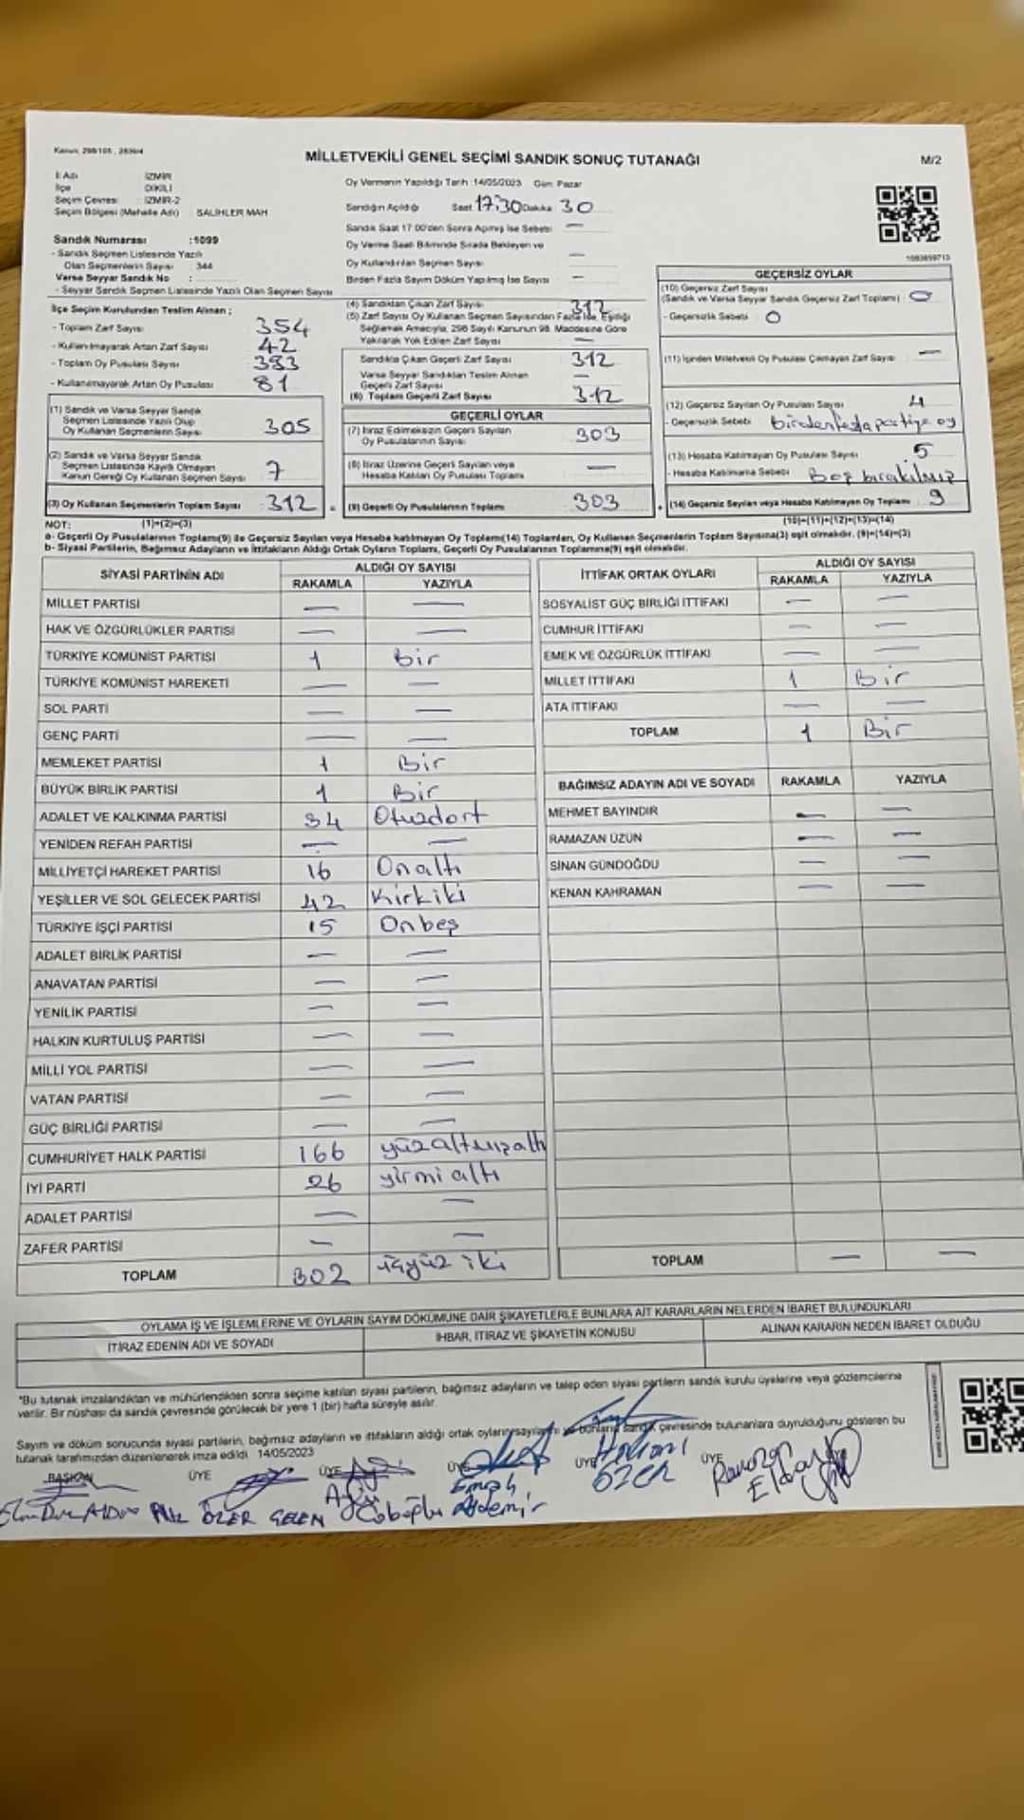 Kanun: 298/105 , 2839/4
MİLLETVEKİLİ GENEL SEÇİMİ SANDIK SONUÇ TUTANAĞI
M/2
İl Adı : İZMİR
İlçe : DİKİLİ
Seçim Çevresi : İZMİR-2
Seçim Bölgesi (Mahalle Adı) : SALİHLER MAH
Sandık Numarası : 1099
- Sandık Seçmen Listesinde Yazılı
Olan Seçmenlerin Sayısı : 344
Varsa Seyyar Sandık No :
- Seyyar Sandık Seçmen Listesinde Yazılı Olan Seçmen Sayısı
Oy Vermenin Yapıldığı Tarih :14/05/2023 Gün: Pazar
Sandığın Açıldığı Saat 17:30 Dakika 30
Sandık Saat 17.00'den Sonra Açılmış İse Sebebi —
Oy Verme Saati Bitiminde Sırada Bekleyen ve
Oy Kullandırılan Seçmen Sayısı —
Birden Fazla Sayım Döküm Yapılmış İse Sayısı —
İlçe Seçim Kurulundan Teslim Alınan ;
- Toplam Zarf Sayısı 354
- Kullanılmayarak Artan Zarf Sayısı 42
- Toplam Oy Pusulası Sayısı 383
- Kullanılmayarak Artan Oy Pusulası 81
(1) Sandık ve Varsa Seyyar Sandık
Seçmen Listesinde Yazılı Olup
Oy Kullanan Seçmenlerin Sayısı 305
(2) Sandık ve Varsa Seyyar Sandık
Seçmen Listesinde Kayıtlı Olmayan
Kanun Gereği Oy Kullanan Seçmen Sayısı 7
(3) Oy Kullanan Seçmenlerin Toplam Sayısı 312
(4) Sandıktan Çıkan Zarf Sayısı 312
(5) Zarf Sayısı Oy Kullanan Seçmen Sayısından Fazla İse, Eşitliği
Sağlamak Amacıyla, 298 Sayılı Kanunun 98. Maddesine Göre
Yakılarak Yok Edilen Zarf Sayısı —
Sandıkta Çıkan Geçerli Zarf Sayısı 312
Varsa Seyyar Sandıktan Teslim Alınan
Geçerli Zarf Sayısı —
(6) Toplam Geçerli Zarf Sayısı 312
GEÇERLİ OYLAR
(7) İtiraz Edilmeksizin Geçerli Sayılan
Oy Pusulalarının Sayısı 303
(8) İtiraz Üzerine Geçerli Sayılan veya
Hesaba Katılan Oy Pusulası Sayısı —
(9) Geçerli Oy Pusulalarının Toplamı 303
1083859713
GEÇERSİZ OYLAR
(10) Geçersiz Zarf Sayısı
(Sandık ve Varsa Seyyar Sandık Geçersiz Zarf Toplamı) 0
- Geçersizlik Sebebi 0
(11) İçinden Milletvekili Oy Pusulası Çıkmayan Zarf Sayısı —
(12) Geçersiz Sayılan Oy Pusulası Sayısı 4
- Geçersizlik Sebebi Birden fazla partiye oy
(13) Hesaba Katılmayan Oy Pusulası Sayısı 5
- Hesaba Katılmama Sebebi Boş bırakılmış
(14) Geçersiz Sayılan veya Hesaba Katılmayan Oy Toplamı 9
NOT: (1)+(2)=(3) (10)+(11)+(12)+(13)=(14)
a- Geçerli Oy Pusulalarının Toplamı(9) ile Geçersiz Sayılan veya Hesaba katılmayan Oy Toplamı(14) Toplamları, Oy Kullanan Seçmenlerin Toplam Sayısına(3) eşit olmalıdır. (9)+(14)=(3)
b- Siyasi Partilerin, Bağımsız Adayların ve İttifakların Aldığı Ortak Oyların Toplamı, Geçerli Oy Pusulalarının Toplamına(9) eşit olmalıdır.
SİYASİ PARTİNİN ADI ALDIĞI OY SAYISI
RAKAMLA YAZIYLA
MİLLET PARTİSİ — —
HAK VE ÖZGÜRLÜKLER PARTİSİ — —
TÜRKİYE KOMÜNİST PARTİSİ 1 Bir
TÜRKİYE KOMÜNİST HAREKETİ — —
SOL PARTİ — —
GENÇ PARTİ — —
MEMLEKET PARTİSİ 1 Bir
BÜYÜK BİRLİK PARTİSİ 1 Bir
ADALET VE KALKINMA PARTİSİ 34 Otuzdört
YENİDEN REFAH PARTİSİ — —
MİLLİYETÇİ HAREKET PARTİSİ 16 Onaltı
YEŞİLLER VE SOL GELECEK PARTİSİ 42 Kırkiki
TÜRKİYE İŞÇİ PARTİSİ 15 Onbeş
ADALET BİRLİK PARTİSİ — —
ANAVATAN PARTİSİ — —
YENİLİK PARTİSİ — —
HALKIN KURTULUŞ PARTİSİ — —
MİLLİ YOL PARTİSİ — —
VATAN PARTİSİ — —
GÜÇ BİRLİĞİ PARTİSİ — —
CUMHURİYET HALK PARTİSİ 166 yüzaltmışaltı
İYİ PARTİ 26 yirmi altı
ADALET PARTİSİ — —
ZAFER PARTİSİ — —
TOPLAM 302 üçyüz iki
İTTİFAK ORTAK OYLARI ALDIĞI OY SAYISI
RAKAMLA YAZIYLA
SOSYALİST GÜÇ BİRLİĞİ İTTİFAKI — —
CUMHUR İTTİFAKI — —
EMEK VE ÖZGÜRLÜK İTTİFAKI — —
MİLLET İTTİFAKI 1 Bir
ATA İTTİFAKI — —
TOPLAM 1 Bir
BAĞIMSIZ ADAYIN ADI VE SOYADI RAKAMLA YAZIYLA
MEHMET BAYINDIR — —
RAMAZAN UZUN — —
SİNAN GÜNDOĞDU — —
KENAN KAHRAMAN — —
TOPLAM — —
OYLAMA İŞ VE İŞLEMLERİNE VE OYLARIN SAYIM DÖKÜMÜNE DAİR ŞİKAYETLERLE BUNLARA AİT KARARLARIN NELERDEN İBARET BULUNDUKLARI
İTİRAZ EDENİN ADI VE SOYADI İHBAR, İTİRAZ VE ŞİKAYETİN KONUSU ALINAN KARARIN NEDEN İBARET OLDUĞU
*Bu tutanak imzalandıktan ve mühürlendikten sonra seçime katılan siyasi partilerin, bağımsız adayların ve talep eden siyasi partilerin sandık kurulu üyelerine veya gözlemcilerine
verilir. Bir nüshası da sandık çevresinde görülecek bir yere 1 (bir) hafta süreyle asılır.
Sayım ve döküm sonucunda siyasi partilerin, bağımsız adayların ve ittifakların aldığı ortak oyların sayılarını ve bunların sandık çevresinde bulunanlara duyrulduğunu gösteren bu
tutanak tarafımızdan düzenlenerek imza edildi 14/05/2023
BAŞKAN ÜYE ÜYE ÜYE ÜYE ÜYE
ÖZER GELEN
Emrah
Akdemir
ÖZER
Ramazan